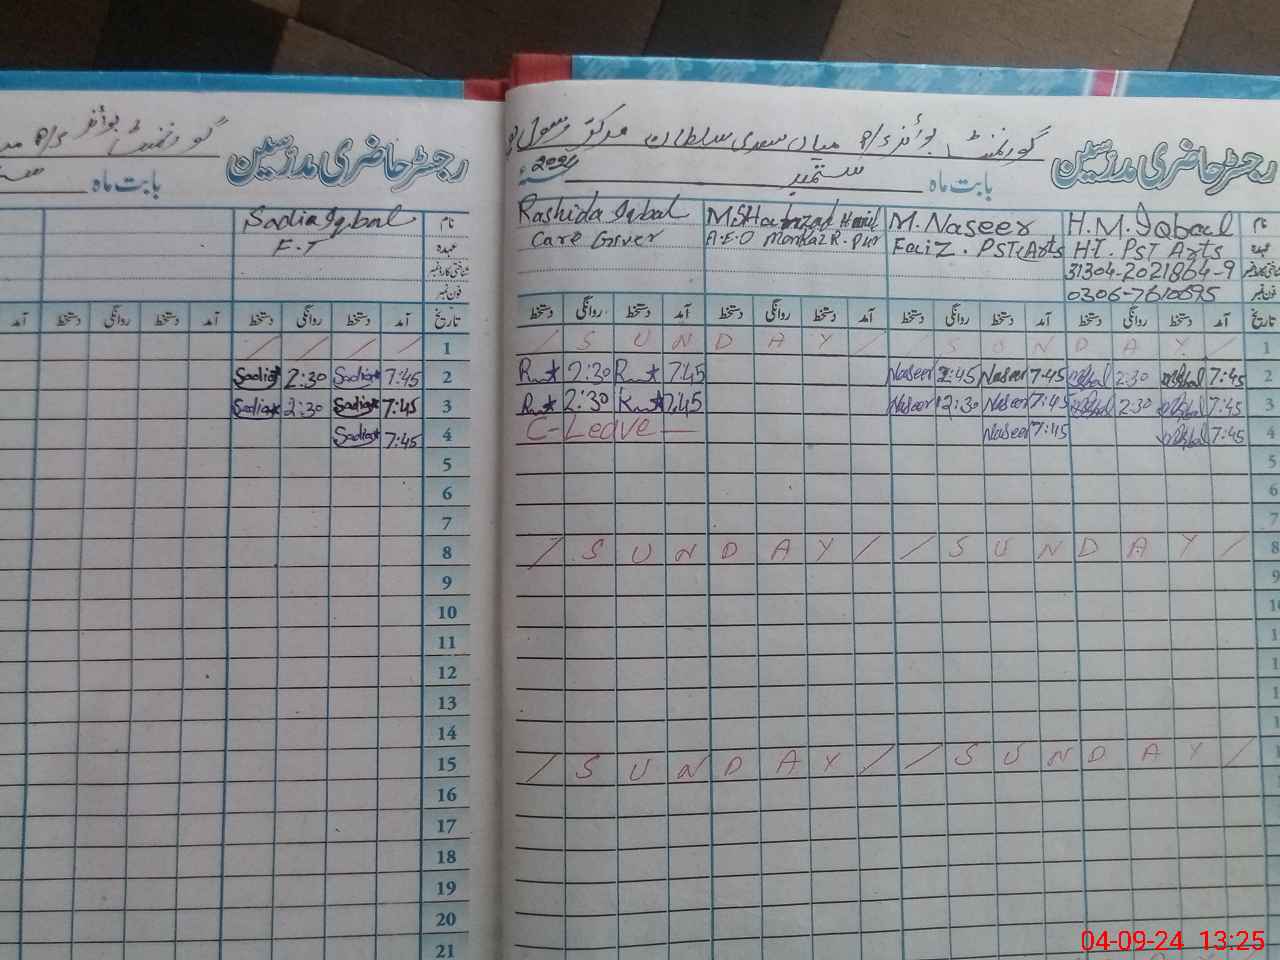 گورنمنٹ بوائز p/s میاں سعدی سلطان مرکز رسول پور
رجسٹر حاضری مدرسین
بابت ماہ ستمبر 2024
نام H.M.Iqbal M.Naseer M.Shahzad Rashida Iqbal
عہدہ H.T. PST Arts Faiz. PST Arts A.E.O Markaz R.Pur Care Giver
شناختی کارڈ نمبر 31304-2021864-9
فون نمبر 0306-7610695
تاریخ آمد دستخط روانگی دستخط آمد دستخط روانگی دستخط آمد دستخط روانگی دستخط آمد دستخط روانگی دستخط
1 / S U N D A Y / / S U N D A Y /
2 7:45 Iqbal 2:30 Iqbal 7:45 Naseer 2:45 Naseer 7:45 2:30
3 7:45 Iqbal 2:30 Iqbal 7:45 Naseer 12:30 Naseer 7:45 2:30
4 7:45 Iqbal 7:45 Naseer C-Leave —
5
6
7
8 / S U N D A Y / / S U N D A Y /
9
10
15 / S U N D A Y / / S U N D A Y /
گورنمنٹ بوائز p/s
رجسٹر حاضری مدرسین
بابت ماہ
نام Sadia Iqbal
عہدہ E.T
شناختی کارڈ نمبر
فون نمبر
تاریخ آمد دستخط روانگی دستخط آمد دستخط روانگی دستخط آمد
1 / / / /
2 7:45 Sadia 2:30 Sadia
3 7:45 Sadia 2:30 Sadia
4 7:45 Sadia
5
6
7
8
9
10
11
12
13
14
15
16
17
18
19
20
21
04-09-24 13:25